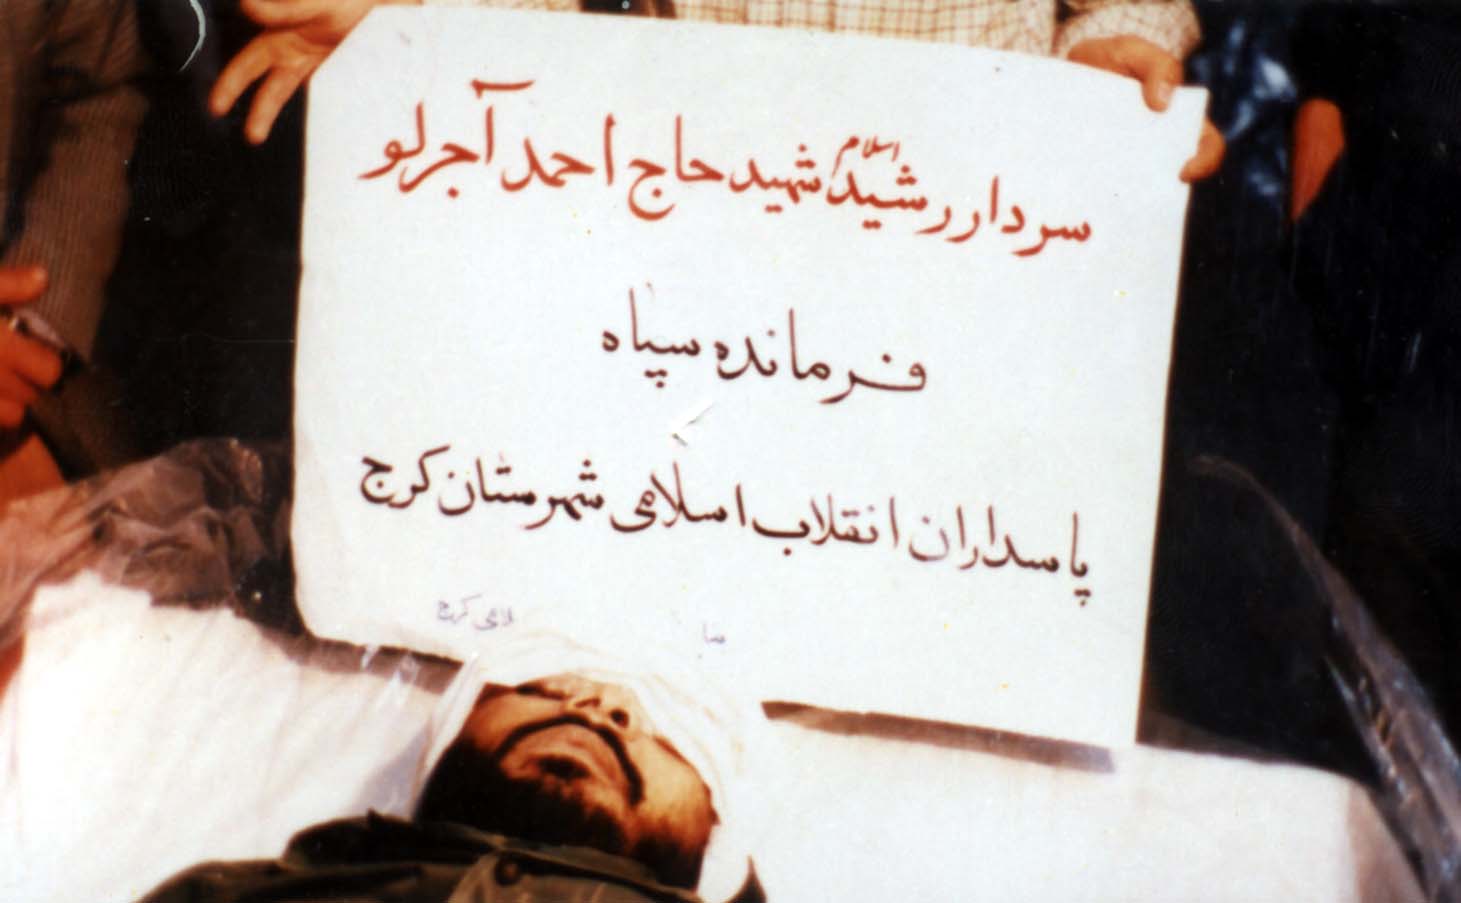 سردار رشید اسلام شهید حاج احمد آجرلو
فرمانده سپاه
پاسداران انقلاب اسلامی شهرستان کرج